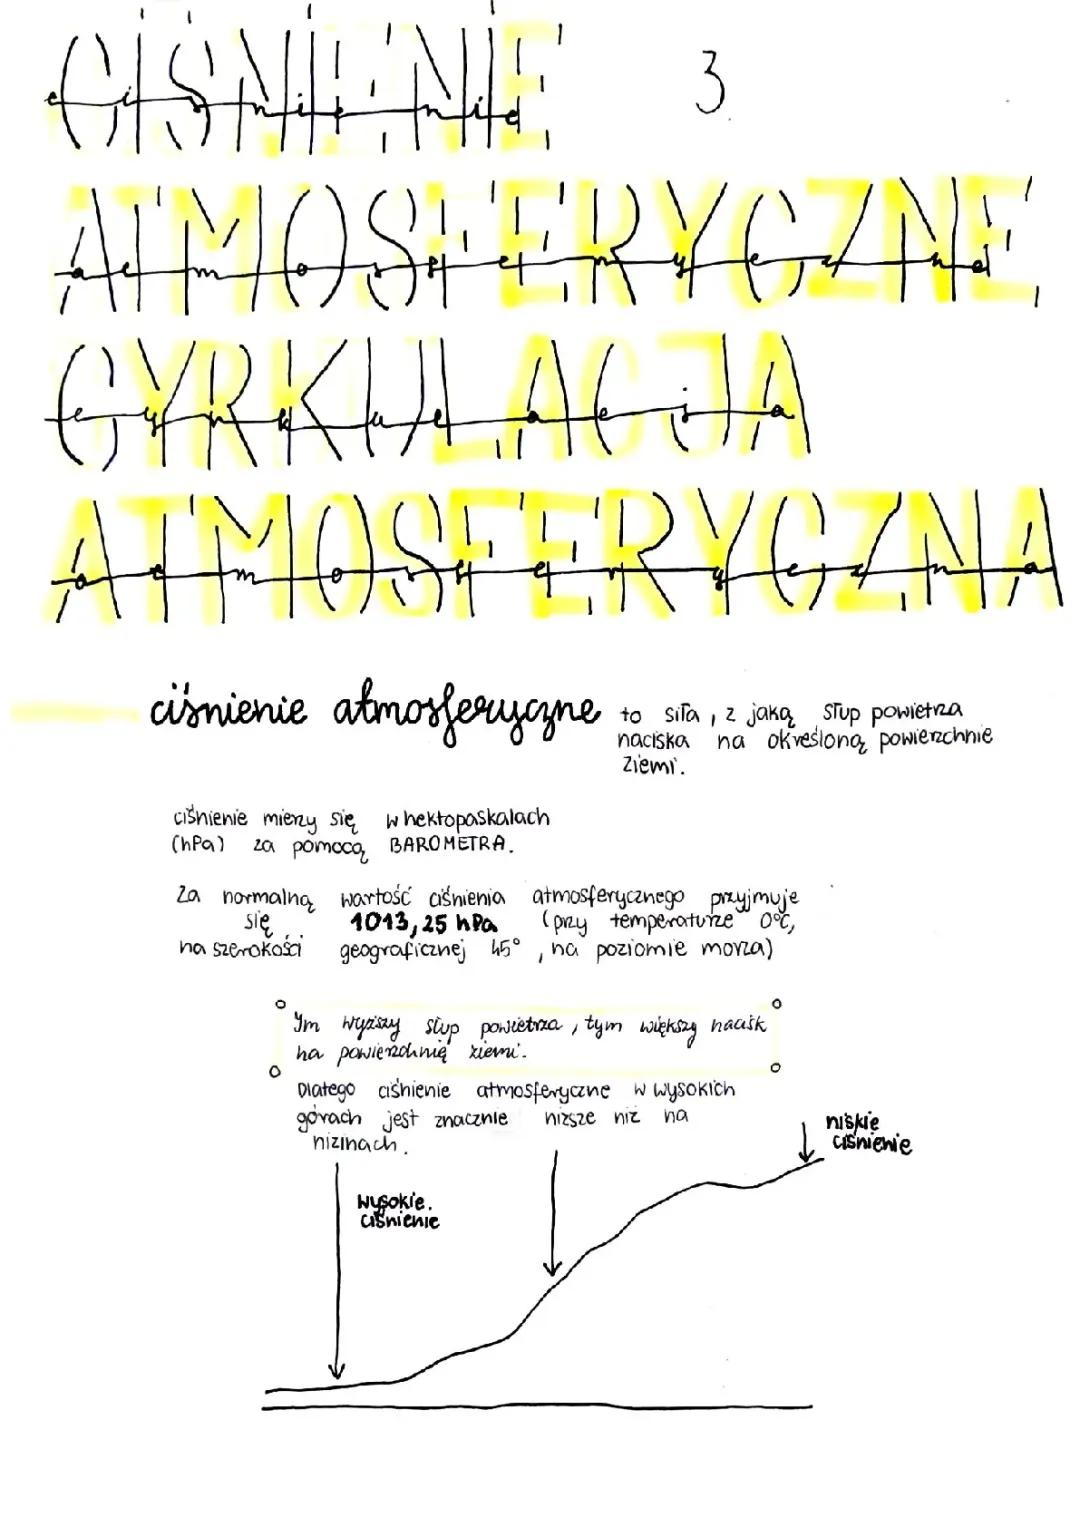 CIŚNIENIE 3
ciśnienie
ATMOSFERYCZNE
atmosferyczne
CYRKULACJA
cyrkulacja
ATMOSFERYCZNA
atmosferyczna
ciśnienie atmosferyczne to siła, z jaką słup powietrza
naciska na określoną powierzchnie
ziemi.
ciśnienie mierzy się w hektopaskalach
(hPa) za pomocą BAROMETRA.
Za normalną wartość ciśnienia atmosferycznego przyjmuje
się 1013,25 hPa (przy temperaturze 0°C,
na szerokości geograficznej 45°, na poziomie morza)
Im wyższy słup powietrza, tym większy nacisk
na powierzchnię ziemi.
Dlatego ciśnienie atmosferyczne w wysokich
górach jest znacznie niższe niż na
nizinach.
niskie
ciśnienie
wysokie.
ciśnienie